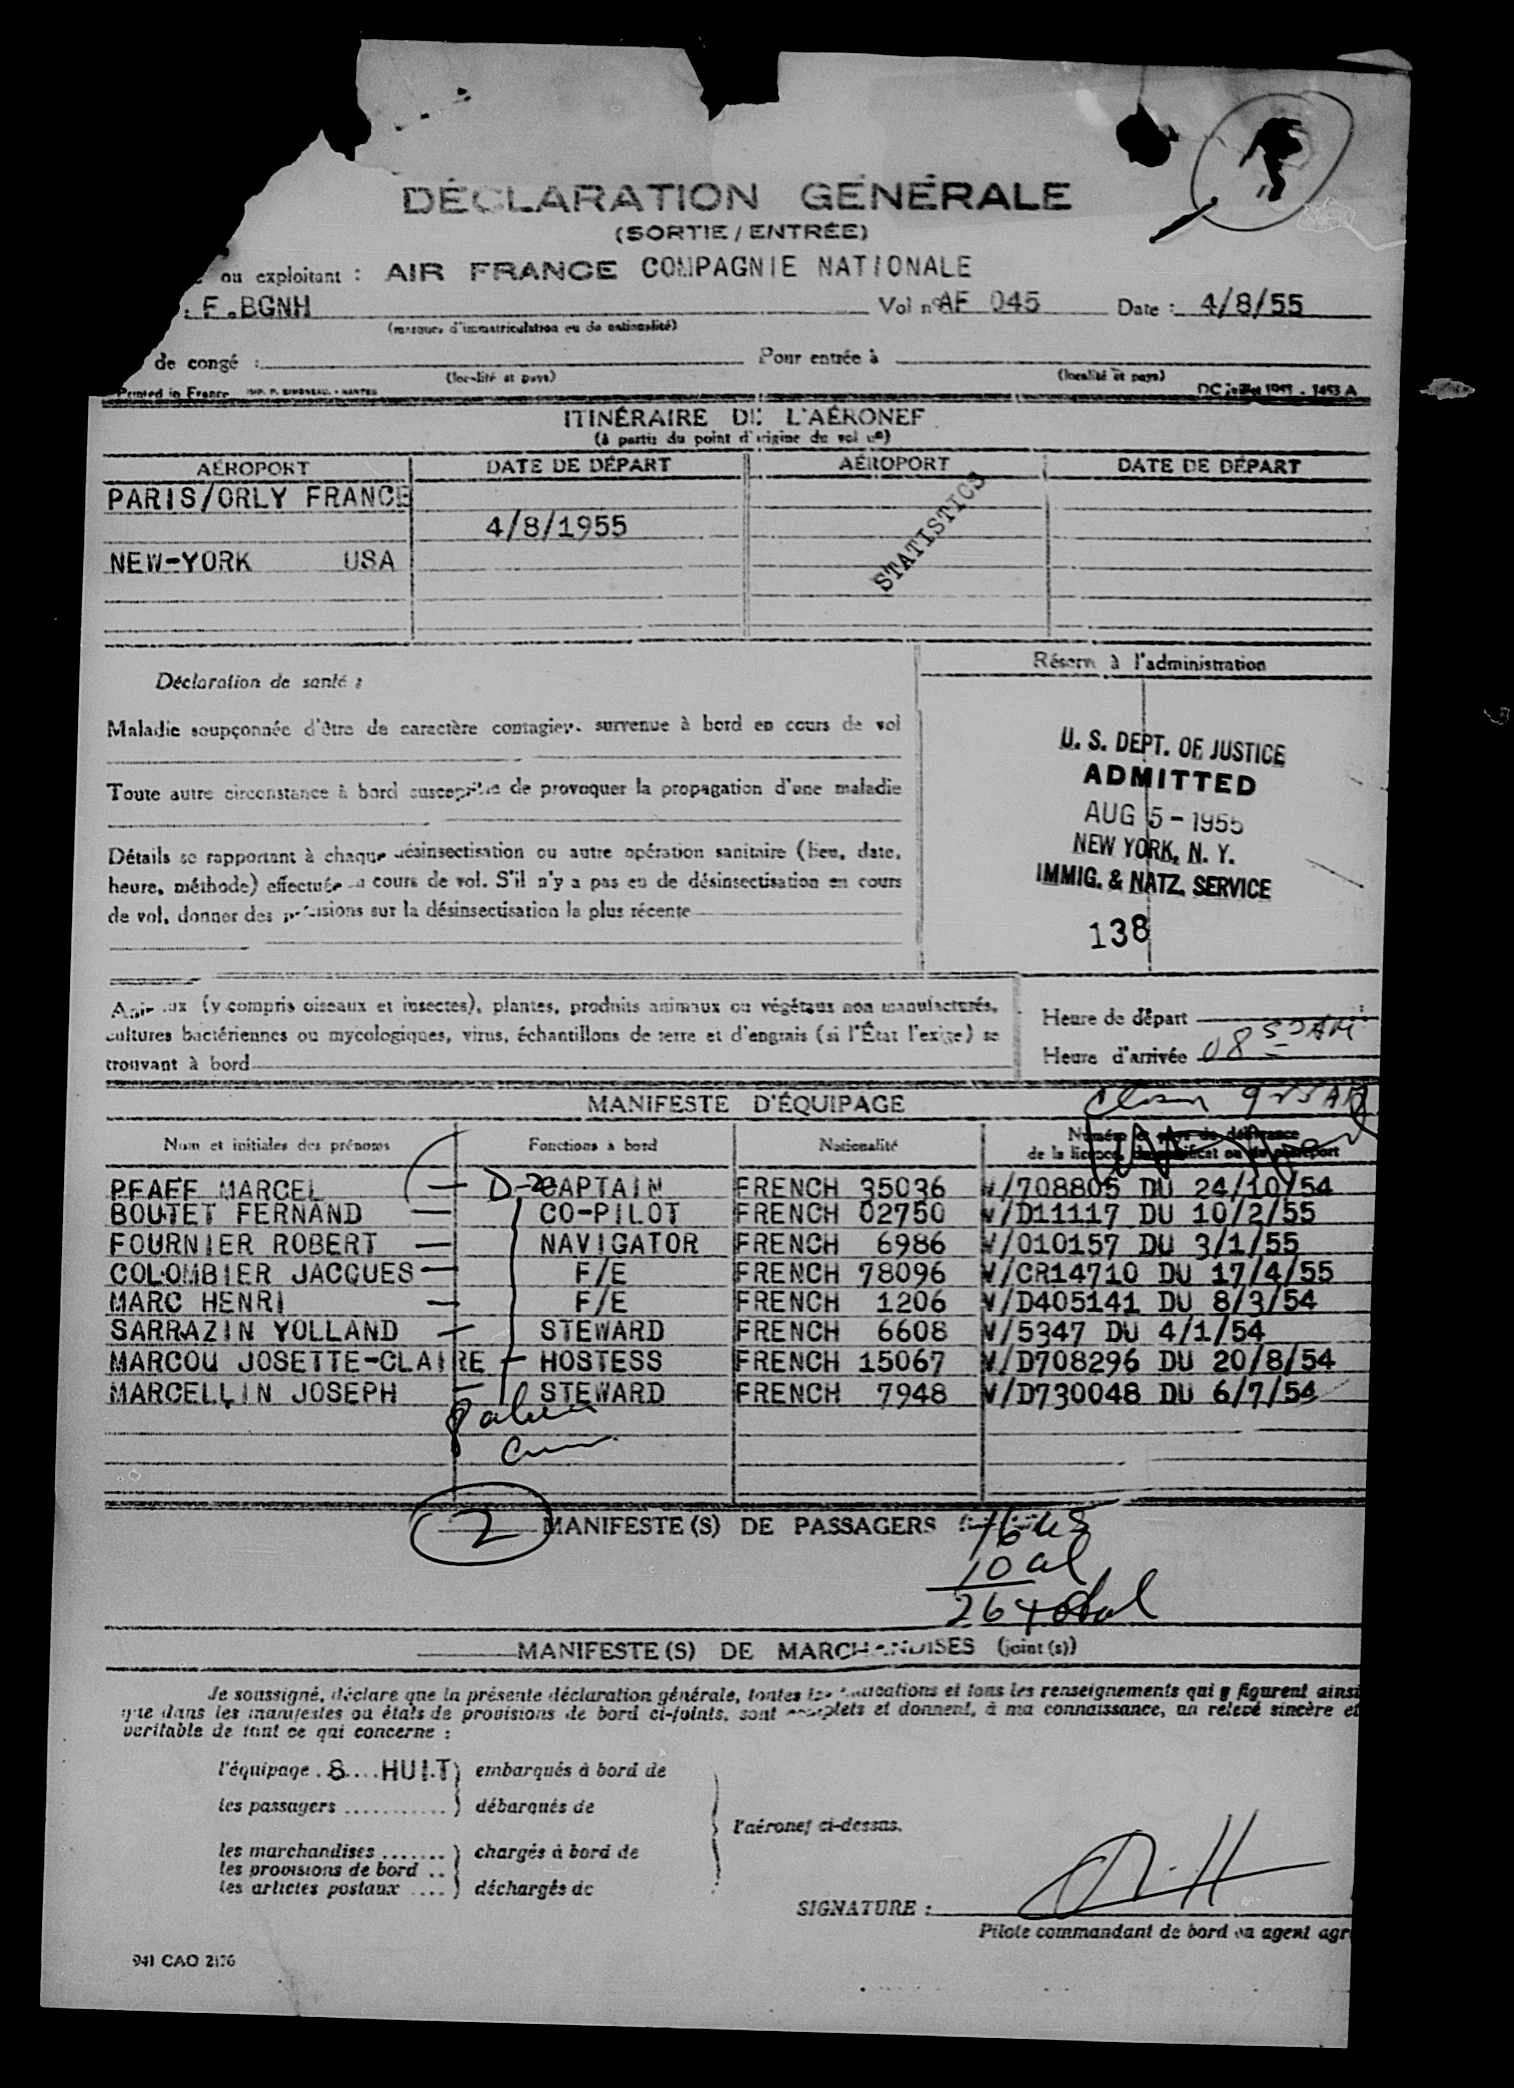 DÉCLARATION GÉNÉRALE
(SORTIE / ENTRÉE)
ou exploitant : AIR FRANCE COMPAGNIE NATIONALE
: F.BGNH Vol n° AF 045 Date : 4/8/55
(marques d'immatriculation ou de nationalité)
de congé : Pour entrée à
(localité et pays) (localité et pays)
Printed in France IMP. P. SIMONEAU. - NANTES DC juillet 1953 - 1453 A
ITINÉRAIRE DE L'AÉRONEF
(à partir du point d'origine du vol n°)
AÉROPORT DATE DE DÉPART AÉROPORT DATE DE DÉPART
PARIS/ORLY FRANCE
4/8/1955
NEW-YORK USA
STATISTICS
Déclaration de santé :
Réservé à l'administration
Maladie soupçonnée d'être de caractère contagieux survenue à bord en cours de vol
Toute autre circonstance à bord susceptible de provoquer la propagation d'une maladie
Détails se rapportant à chaque désinsectisation ou autre opération sanitaire (lieu, date,
heure, méthode) effectuée en cours de vol. S'il n'y a pas eu de désinsectisation en cours
de vol, donner des précisions sur la désinsectisation la plus récente
U. S. DEPT. OF JUSTICE
ADMITTED
AUG 5 - 1955
NEW YORK, N. Y.
IMMIG. & NATZ. SERVICE
138
Animaux (y compris oiseaux et insectes), plantes, produits animaux ou végétaux non manufacturés,
cultures bactériennes ou mycologiques, virus, échantillons de terre et d'engrais (si l'État l'exige) se
trouvant à bord
Heure de départ
Heure d'arrivée 08 50 AM
MANIFESTE D'ÉQUIPAGE
Nom et initiales des prénoms Fonctions à bord Nationalité Numéro et pays de délivrance
de la licence, du certificat ou du passeport
PFAFF MARCEL — D-2 CAPTAIN FRENCH 35036 V/708805 DU 24/10/54
BOUTET FERNAND — CO-PILOT FRENCH 02750 V/D11117 DU 10/2/55
FOURNIER ROBERT — NAVIGATOR FRENCH 6986 V/010157 DU 3/1/55
COLOMBIER JACQUES — F/E FRENCH 78096 V/CR14710 DU 17/4/55
MARC HENRI — F/E FRENCH 1206 V/D405141 DU 8/3/54
SARRAZIN YOLLAND — STEWARD FRENCH 6608 V/5347 DU 4/1/54
MARCOU JOSETTE-CLAIRE — HOSTESS FRENCH 15067 V/D708296 DU 20/8/54
MARCELLIN JOSEPH — STEWARD FRENCH 7948 V/D730048 DU 6/7/54
2 MANIFESTE(S) DE PASSAGERS
16 us
10 al
26 total
MANIFESTE(S) DE MARCHANDISES (joint(s))
Je soussigné, déclare que la présente déclaration générale, toutes les indications et tous les renseignements qui y figurent ainsi
que dans les manifestes ou états de provisions de bord ci-joints, sont complets et donnent, à ma connaissance, un relevé sincère et
véritable de tout ce qui concerne :
l'équipage . 8 .... HUIT ) embarqués à bord de
les passagers ........... ) débarqués de
l'aéronef ci-dessus.
les marchandises ....... ) chargés à bord de
les provisions de bord ..
les articles postaux .... ) déchargés de
SIGNATURE :
Pilote commandant de bord ou agent agr
941 CAO 2176